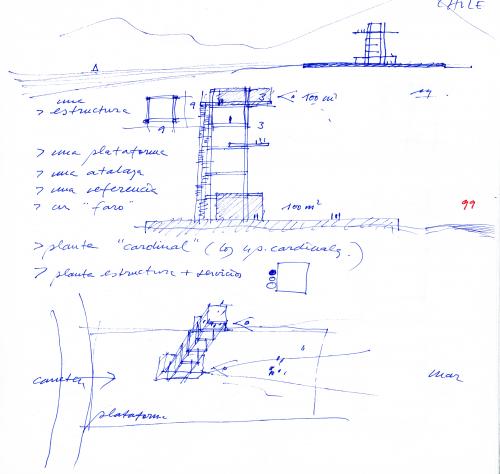 CHILE
> una
estructura
9
9
3
3
100 m²
> una plataforma
> una atalaya
> una referencia
> un "faro"
100 m²
99
> planta "cardinal" (los 4 p. cardinales.)
> planta estructura + servicios
carretera
mar
plataforma